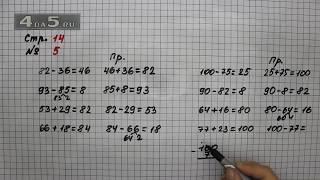 4DA5.RU
Стр. 14
№ 5
Пр.
Пр.
82-36=46 46+36=82 100-75=25 25+75=100
93-85=8 85+8=93 90-82=8 82+8=90
53+29=82 82-29=53 64+16=80 80-64=16
66+18=84 84-66=18 77+23=100 100-77=
-100